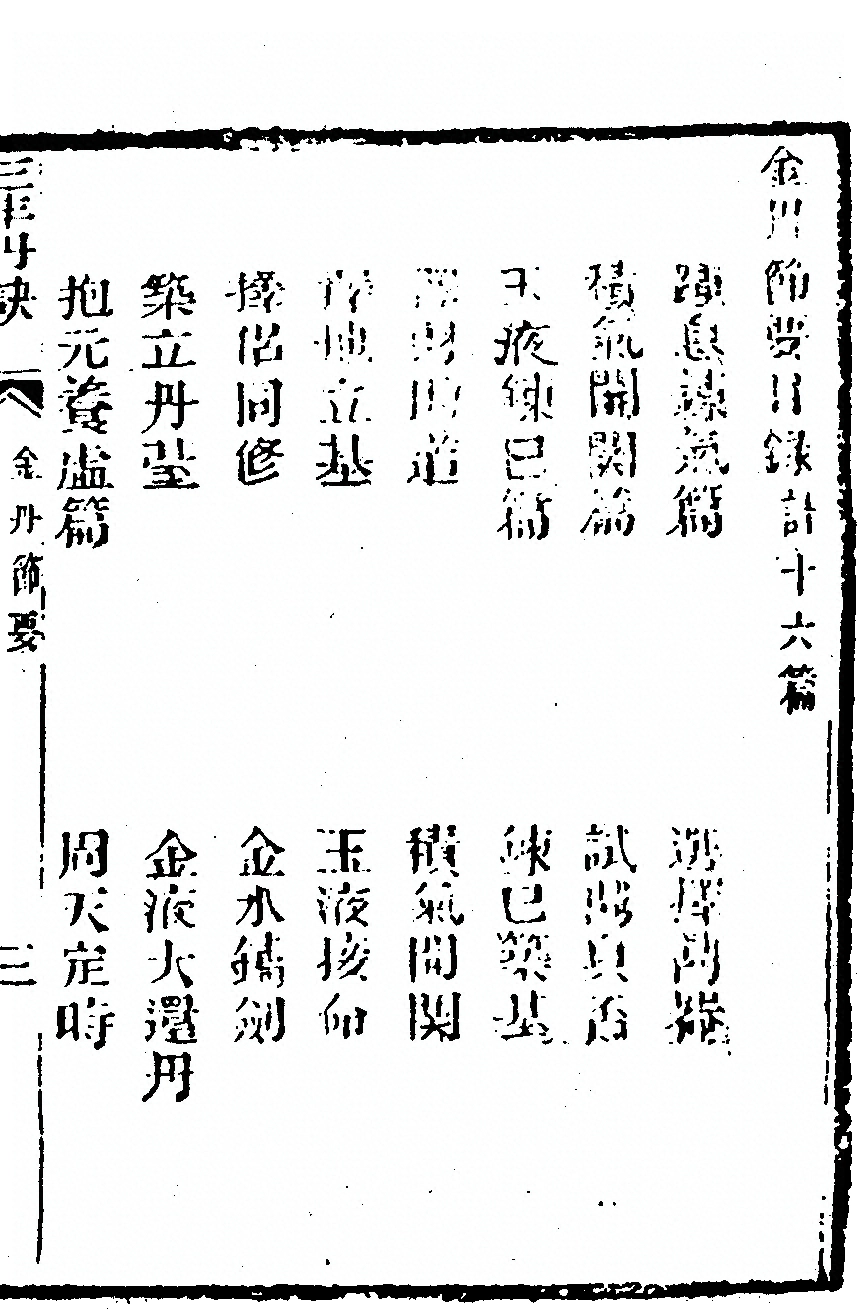 金丹節要目錄計十六篇
踵息鍊氣篇
選擇鼎器
積氣開關篇
試鼎真否
玉液鍊己篇
鍊己築基
擇財助道
積氣開関
擇地立基
玉液接命
擇侶同修
金水鑄劍
築立丹臺
金液大還丹
抱元養虛篇
周天定時
三丰丹訣
金丹節要
三